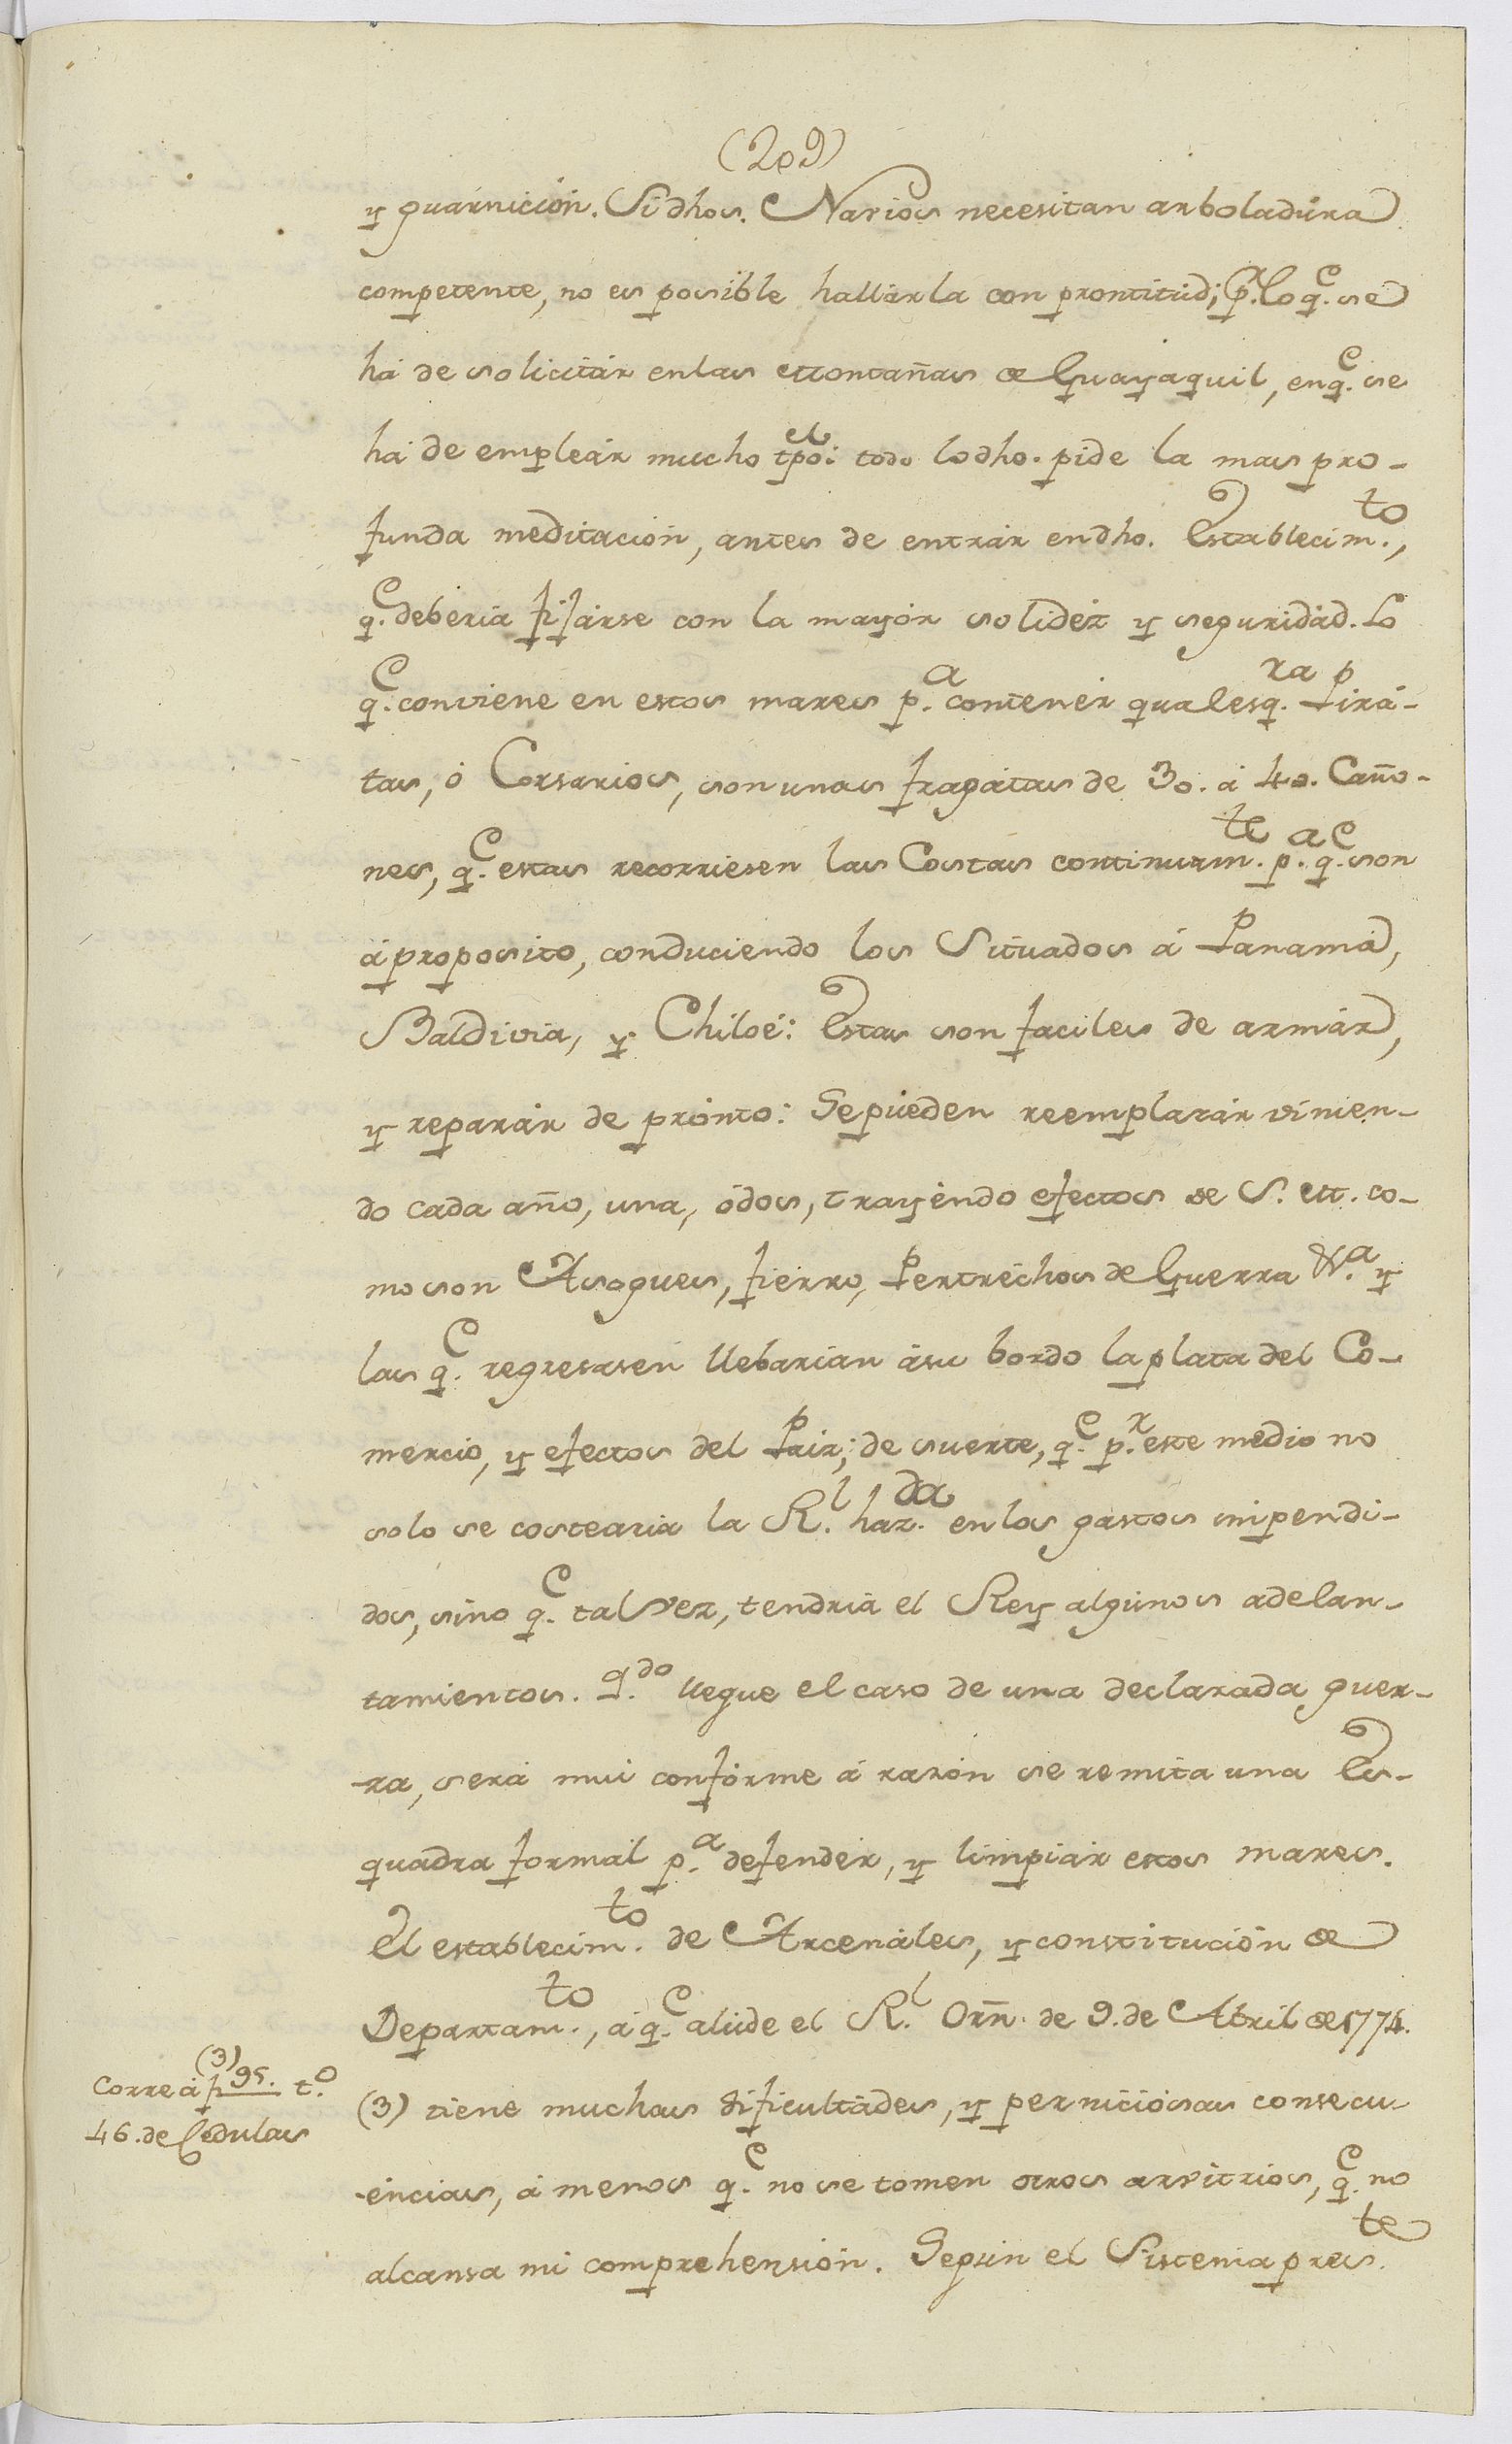 (209)
y guarnición. Si dhos. Navios necesitan arboladúra
competente, no es posible hallárla con prontitúd; p.r lo q.e se
há de solicitár en las Montañas de Guayaquil, en q.e se
há de empleár mucho el tpô: todo lo dho. pide la mas pro-
funda meditación, antes de entrár en dho. Establecim.to,
q.e debería fijárse con la mayór solidéz y seguridád. Lo
q.e conviene en estos mares p.a contenér qualesq.ra Pirá-
tas, ó Corsarios, son unas fragátas de 30. á 40. Caño-
nes, q.e estas recorriesen las Costas continuam.te p.a q.e son
á proposito, conduciendo los Situados á Panamá,
Baldivia, y Chiloé: Estas son faciles de armár,
y reparár de prónto: Se puéden reemplazár vinien-
do cada año, una, ó dos, trayéndo efectos de S. M. co-
mo son Asogues, fierro, Pertréchos de Guerra &.a y
las q.e regresasen llebarían á su bordo la plata del Co-
mercio, y efectos del Paiz; de suerte, q.e p.r este medio no
solo se costearia la R.l haz.da en los gastos impendi-
dos, sino q.e tal vez, tendría el Rey algúnos adelan-
tamientos. Q.do llegue el caso de una declarada guer-
ra, será mui confórme á razón se remita una Es-
quadra formal p.a defendér, y limpiár estos mares.
El establecim.to de Arcenáles, y constitución de
Departam.to, á q.e alúde el R.l Orñ. de 9. de Abril de 1774.
(3) tiene muchas dificultádes, y perniciósas consecu-
(3)
Corre á f 95. t.o
46. de Cedulas
éncias, á menos q.e no se tomen otros arvitrios, q.e no
alcansa mi comprehensión. Según el Sistema pres.te